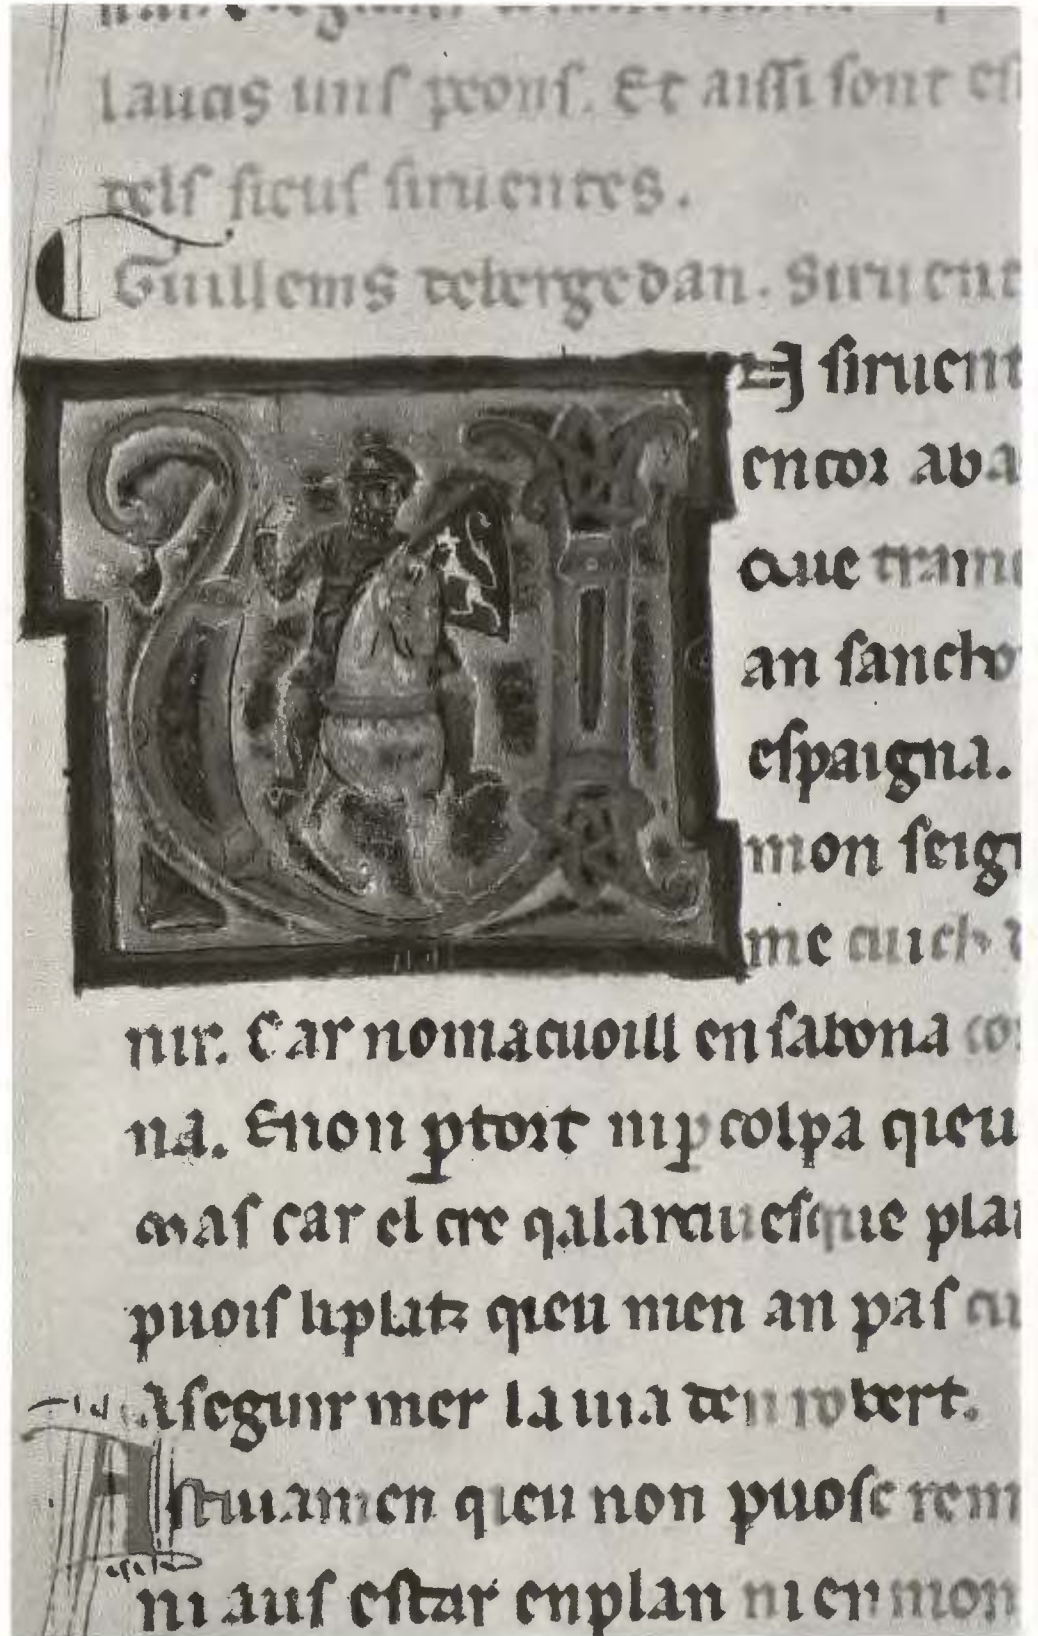 lauais unſ prouſ. Et aiſſi ſont eſ
delſ ſieuſ ſiruentes.
Guillems deberguedan. Siruent
ſiruent
encor aba
Que trame
an ſancho
eſpaigna.
mon ſeign
me cuich
nir. Car nomacuoill en ſabona co
na. Enon ꝑtort niꝑ colpa qieu
mas car el cre qalarceueſque plai
puoiſ liplatz qieu nien an paſ cu
Aſeguir mer la uia den robert.
Aſtruiamen qieu non puoſc rem
ni auſ eſtar enplan ni en mon